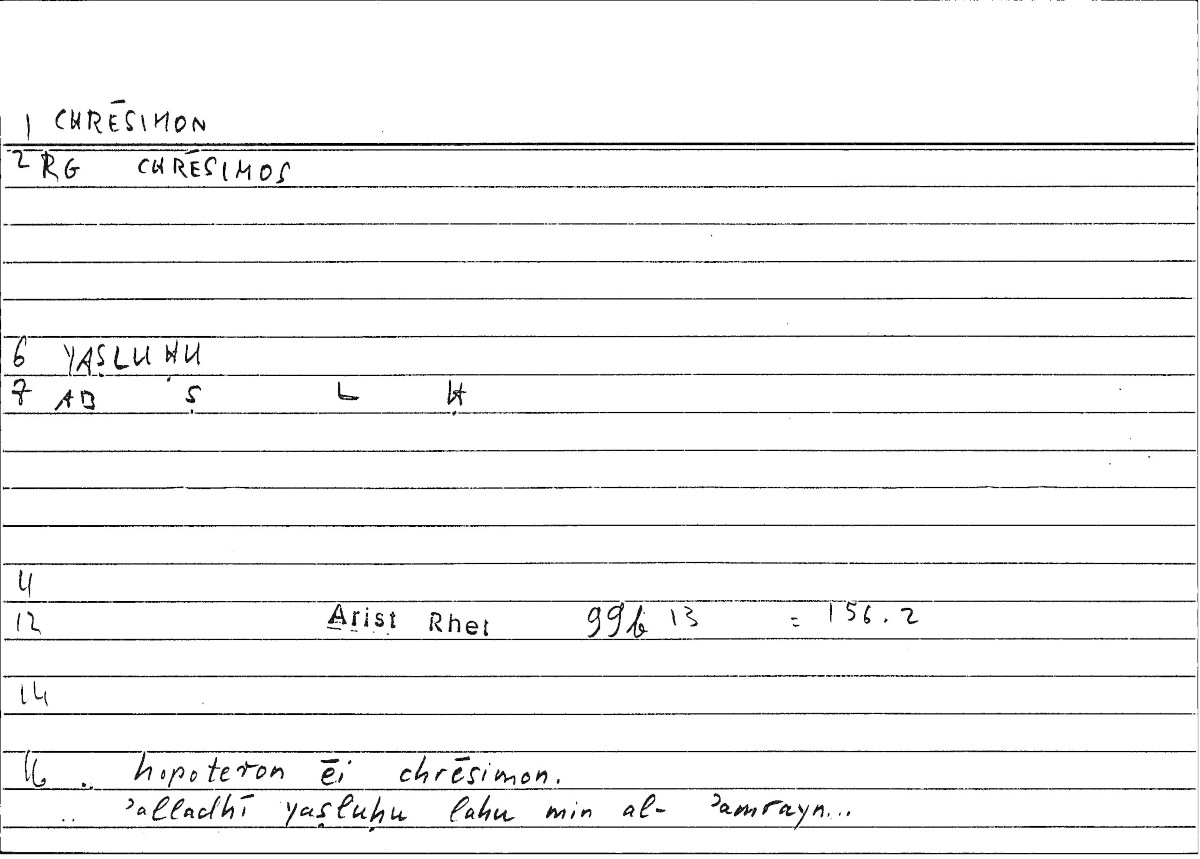 1 CHRĒSIMON
2 RG CHRĒSIMOS
6 YAṢLUḤU
7 AB Ṣ L Ḥ
4
12 Arist Rhet 99b 13 = 156.2
14
16 .. hopoteron ēi chrēsimon.
.. ʾalladhī yaṣluḥu lahu min al- ʾamrayn...